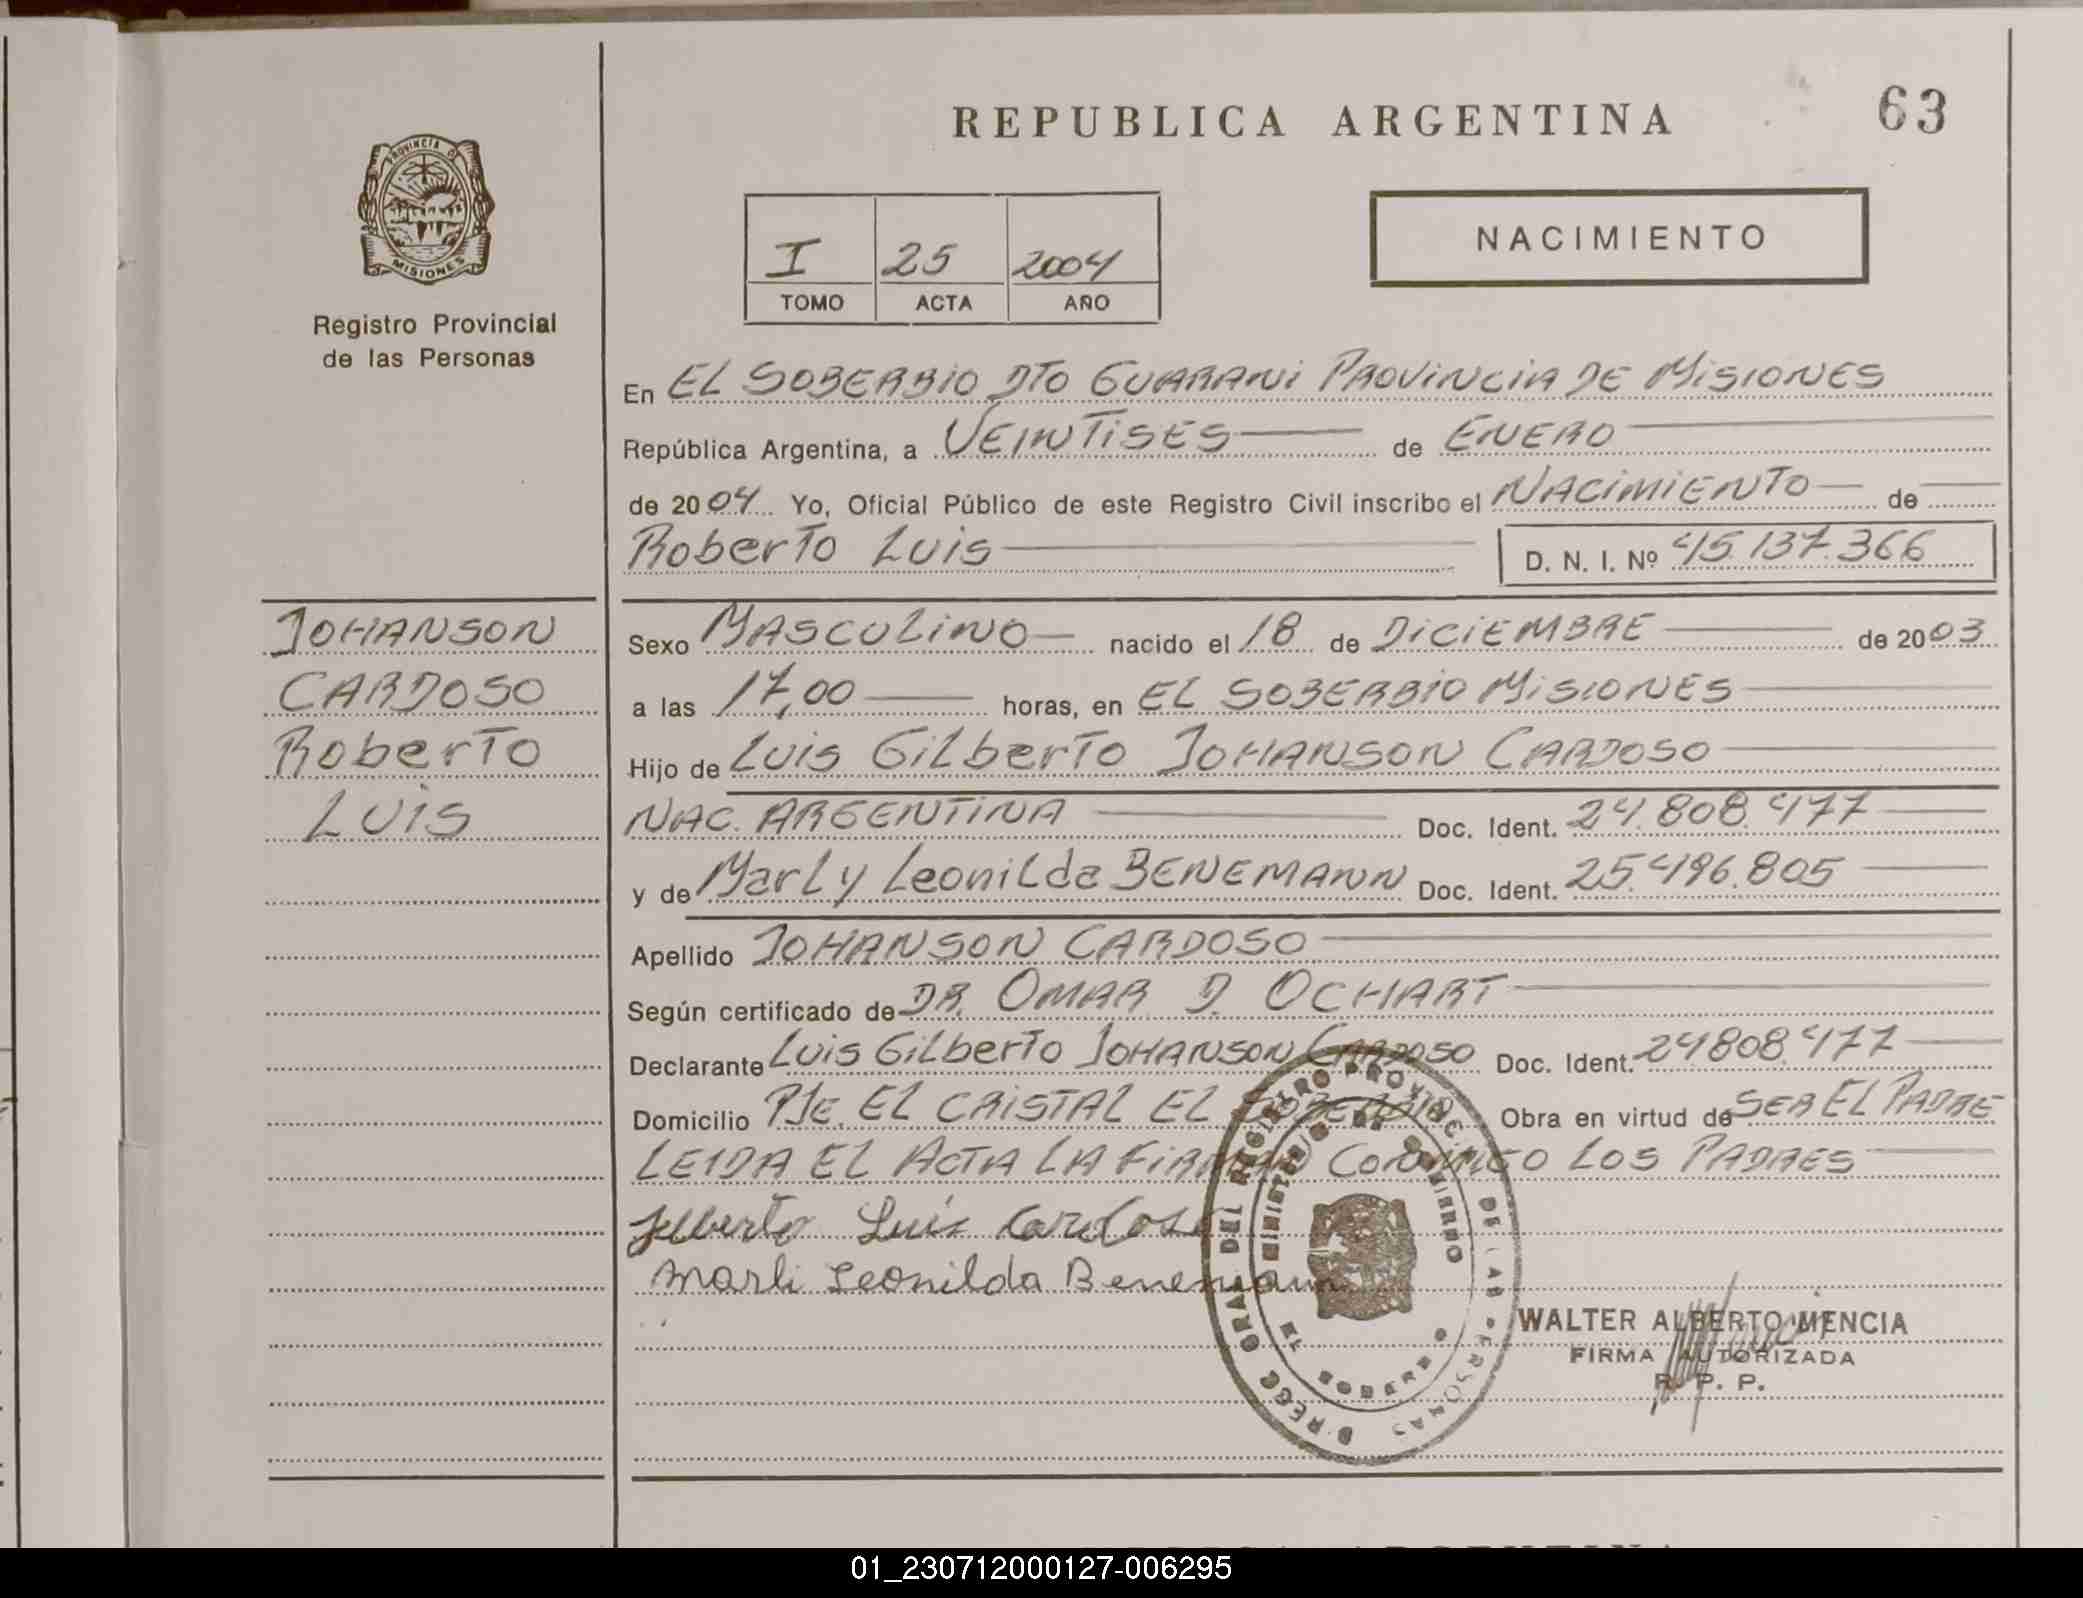 REPUBLICA ARGENTINA
63
PROVINCIA DE
MISIONES
Registro Provincial
de las Personas
I 25 2004
TOMO ACTA AÑO
NACIMIENTO
En EL SOBERBIO DTO GUARANI PROVINCIA DE MISIONES
República Argentina, a VEINTISES de ENERO
de 2004 Yo, Oficial Público de este Registro Civil inscribo el NACIMIENTO de
Roberto Luis D. N. I. Nº 45.137.366
JOHANSON
CARDOSO
Roberto
LUIS
Sexo MASCULINO nacido el 18 de DICIEMBRE de 2003
a las 17,00 horas, en EL SOBERBIO MISIONES
Hijo de Luis Gilberto JOHANSON CARDOSO
NAC. ARGENTINA Doc. Ident. 24.808.477
y de Marly Leonilda BENEMANN Doc. Ident. 25.496.805
Apellido JOHANSON CARDOSO
Según certificado de DR. OMAR D. OCHART
Declarante Luis Gilberto JOHANSON CARDOSO Doc. Ident. 24808.477
Domicilio PJE. EL CRISTAL EL SOBERBIO Obra en virtud de SER EL PADRE
LEIDA EL ACTA LA FIRMAN CONMIGO LOS PADRES
Luis Cardoso
Marli Leonilda Benemann
DIRECC GRAL DEL REGISTRO PROVINC. DE LAS PERSONAS
MINISTERIO DE GOBIERNO
EL SOBERB
WALTER ALBERTO MENCIA
FIRMA AUTORIZADA
R. P. P.
01_230712000127-006295